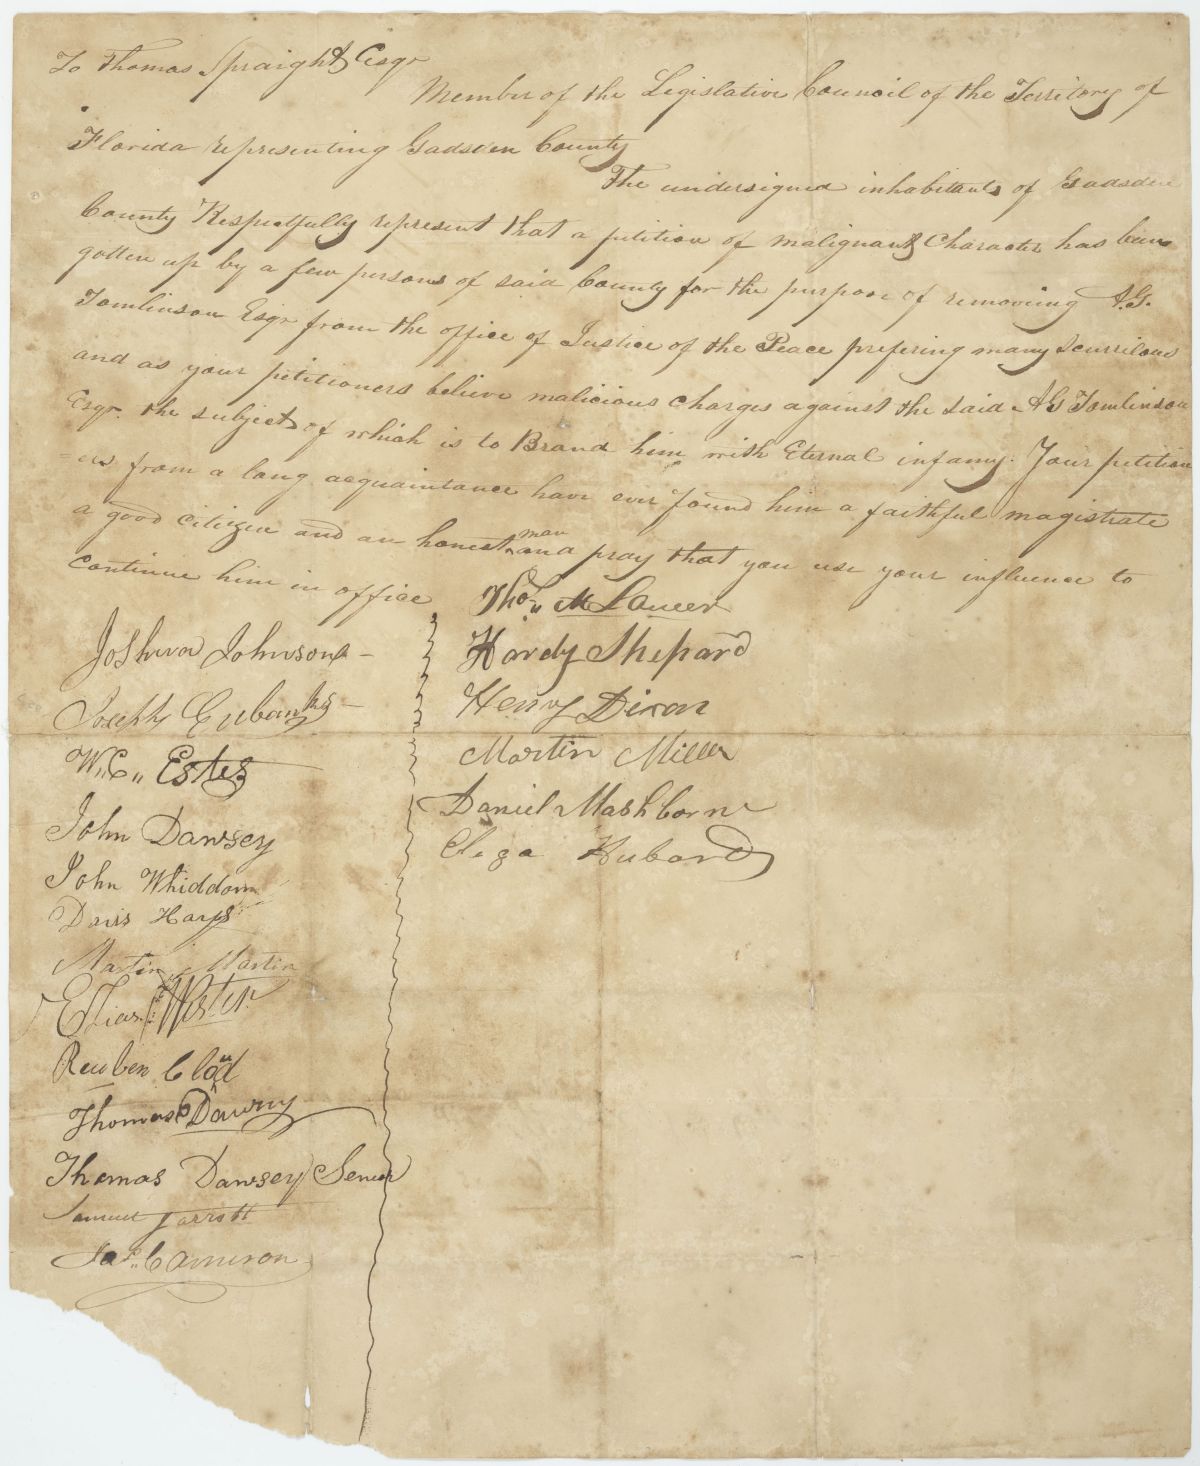 To Thomas Spraight Esqr
Member of the Legislative Council of the Territory of
Florida representing Gadsden County
The undersigned inhabitants of Gadsden
County Respectfully represent that a petition of malignant Character has been
gotten up by a few persons of said County for the purpose of removing A.G.
Tomlinson Esqr from the office of Justice of the Peace prefering many scurrilous
and as your petitioners believe malicious charges against the said A G Tomlinson
Esqr. the subject of which is to Brand him with Eternal infamy. Your petition
=ers from a long acquaintance have ever found him a faithful magistrate
a good citizen and an honest man and pray that you use your influence to
continue him in office
Joshua Johnson
Joseph Eubanks
W,,C,, Estes
John Dawsey
John Whiddon
Davis Harps
Matin Martin
Elias Wester
Reuben Cloud
Thomas Dawsey
Thomas Dawsey Senior
Samuel Jarrott
Jas,, Cameron
Thos,, M
Hardy Shepard
Henry Dixon
Martin Miller
Daniel Mashborn
Hubard